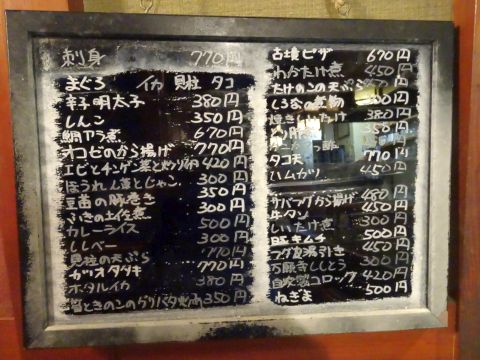 刺身 770円
まぐろ イカ 貝柱 タコ
辛子明太子 380円
しんこ 350円
鯛アラ煮 670円
オコゼのから揚げ 770円
エビとチンゲン菜と 420円
ほうれん草とじゃこ 300円
豆苗の豚巻き 350円
ふきの土佐煮 300円
カレーライス 500円
ししべー 300円
貝柱の天ぷら 770円
カツオタタキ 770円
ホタルイカ 380円
筍ときのこのグリバタ炒め 350円
古墳ピザ 670円
わかたけ煮 450円
たけのこの天ぷら 450円
しろなの煮物 300円
焼きしいたけ 380円
350円
タコ天 770円
ハムカツ 450円
サバフグから揚げ 480円
牛タン 450円
しいたけ煮 300円
豚キムチ 500円
フグ皮湯引き 450円
万願寺ししとう 300円
自家製コロッケ 420円
ねぎま 500円